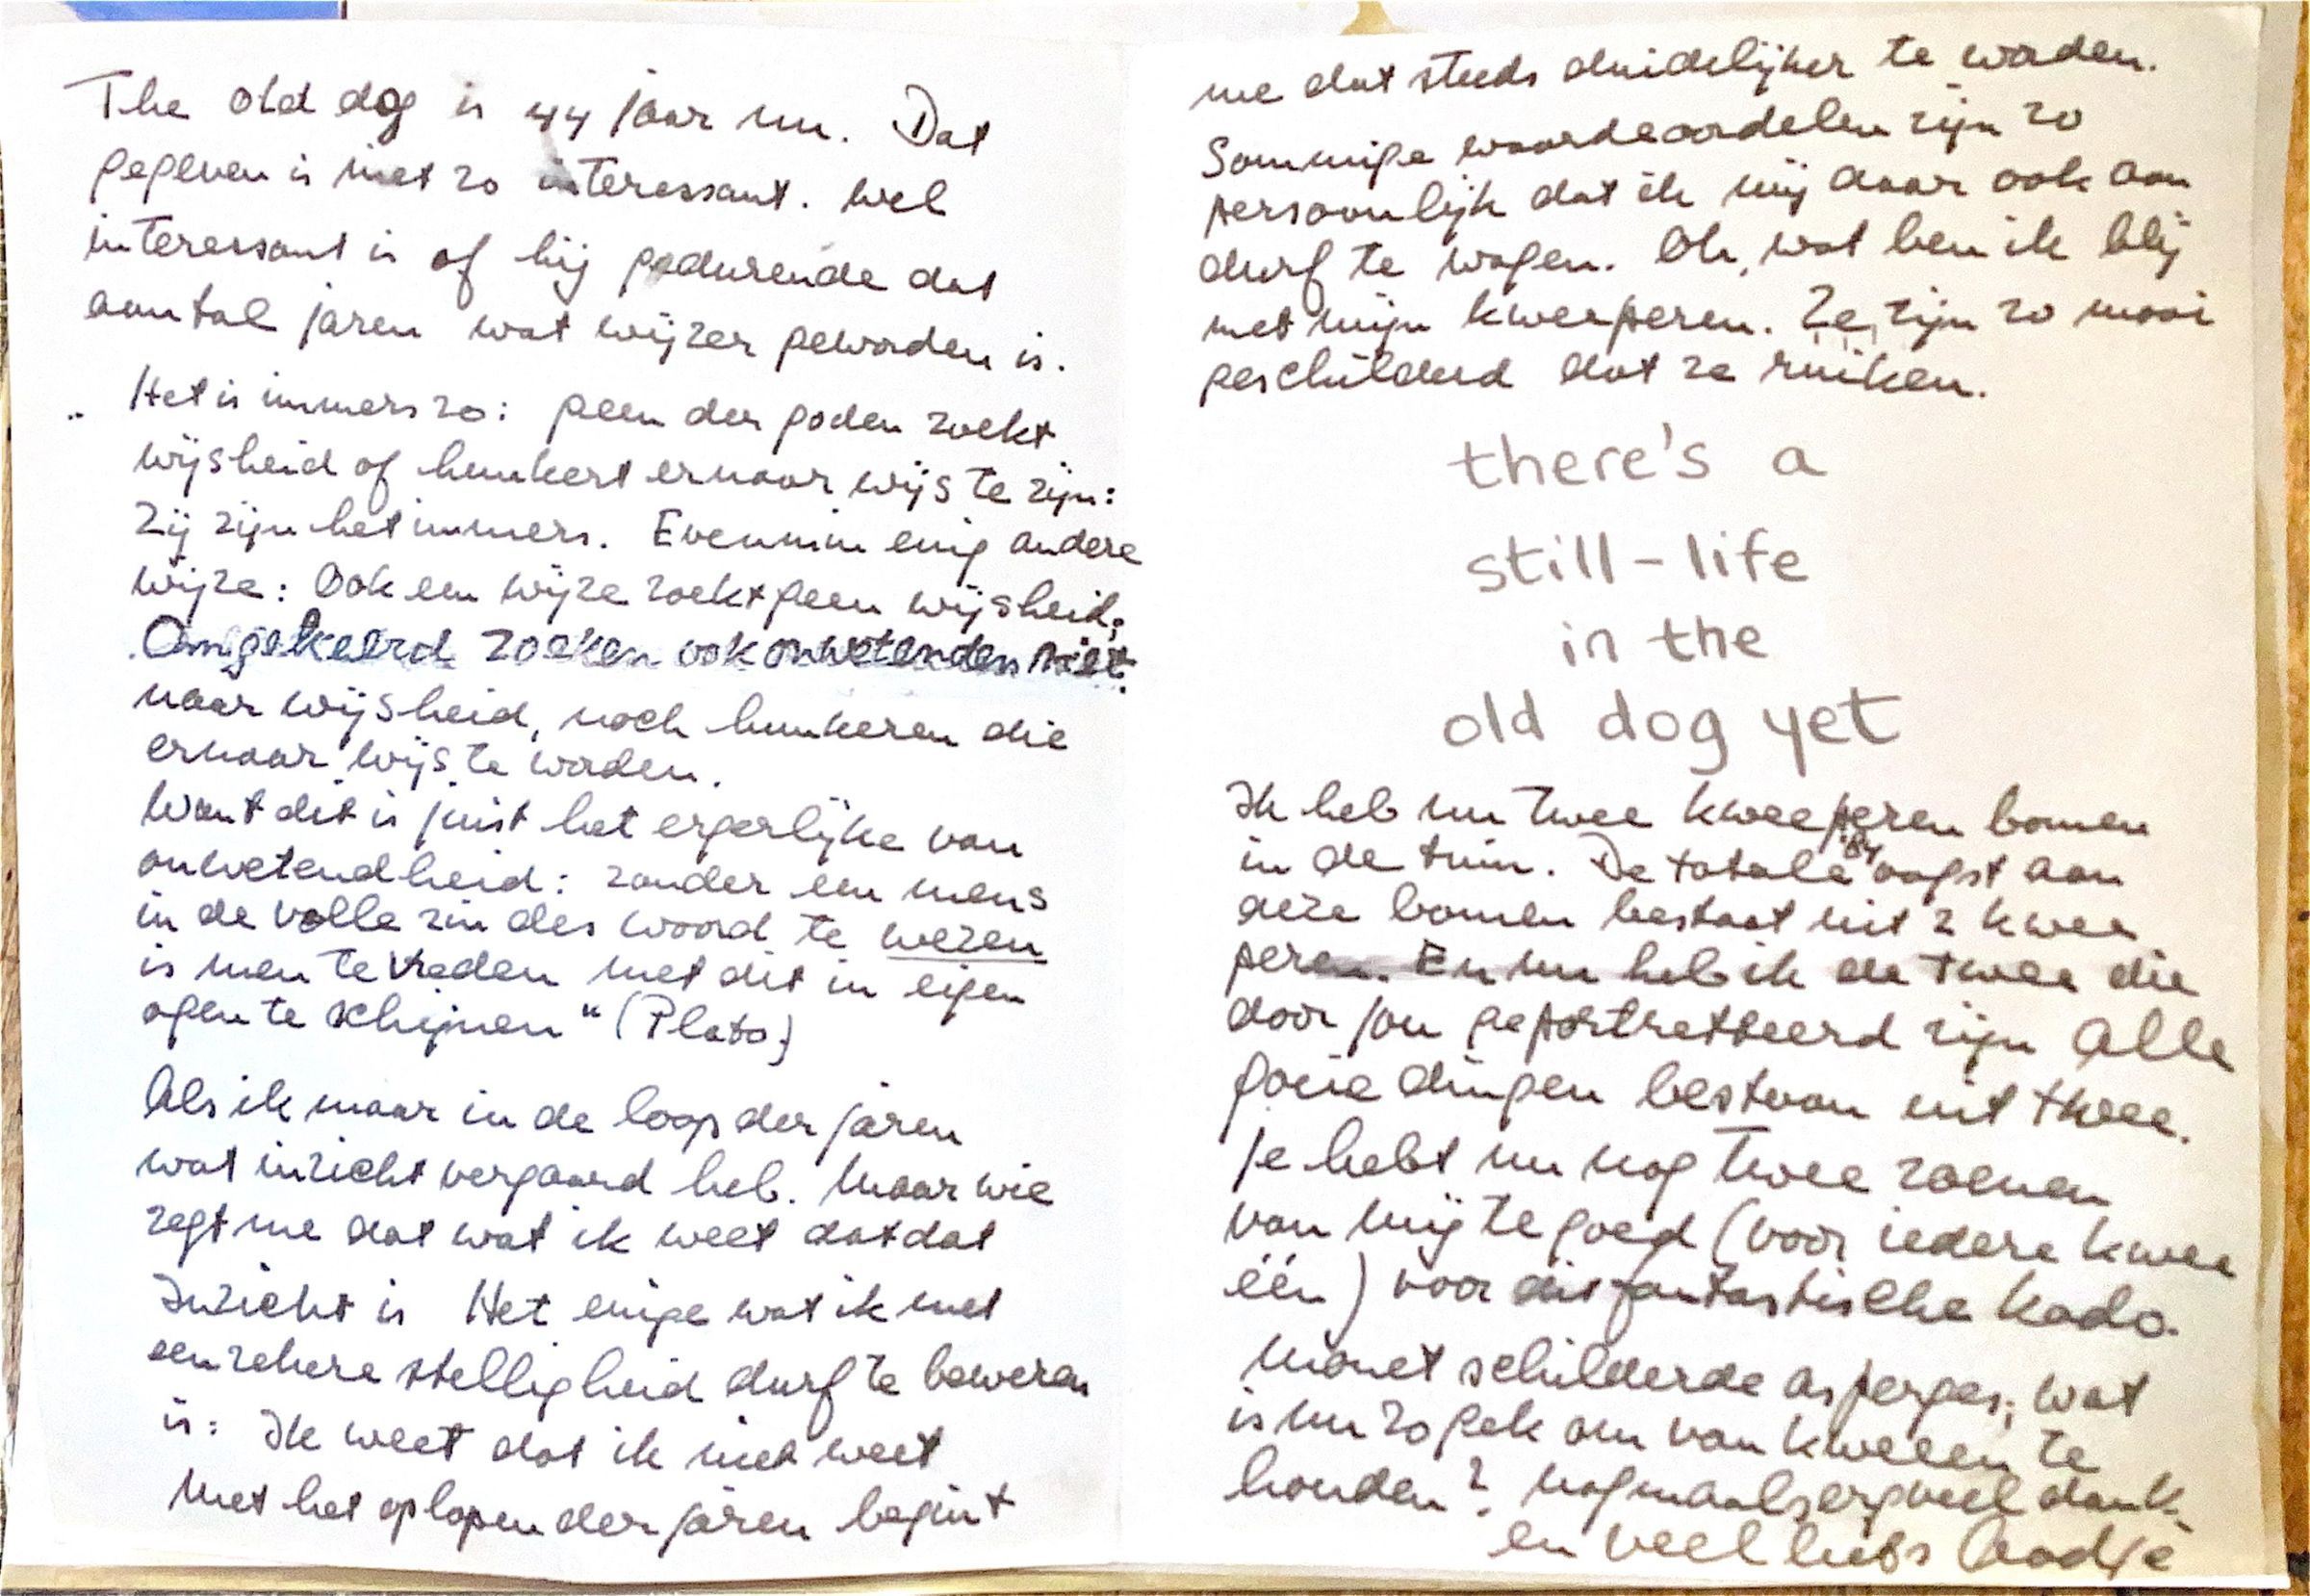 The old dog is 44 jaar nu. Dat
gegeven is niet zo interessant. Wel
interessant is of hij gedurende dat
aantal jaren wat wijzer geworden is.
„ Het is immers zo: geen der goden zoekt
wijsheid of hunkert ernaar wijs te zijn:
zij zijn het immers. Evenmin enig andere
wijze: Ook een wijze zoekt geen wijsheid;
Omgekeerd zoeken ook onwetenden niet
naar wijsheid, noch hunkeren die
ernaar wijs te worden.
Want dit is juist het ergerlijke van
onwetendheid: zonder een mens
in de volle zin des woord te wezen
is men tevreden met dit in eigen
ogen te schijnen" (Plato)
Als ik maar in de loop der jaren
wat inzicht vergaard heb. Maar wie
zegt me dat wat ik weet dat dat
Inzicht is Het enige wat ik met
een zekere stelligheid durf te beweren
is: Ik weet dat ik niet weet
Met het oplopen der jaren begint
me dat steeds duidelijker te worden.
Sommige waardeoordelen zijn zo
persoonlijk dat ik mij daar ook aan
durf te wagen. Oh, wat ben ik blij
met mijn kweeperen. Ze zijn zo mooi
geschilderd dat ze ruiken.
there's a
still-life
in the
old dog yet
Ik heb nu twee kweeperen bomen
in de tuin. De totale '84 oogst aan
deze bomen bestaat uit 2 kwee
peren. En nu heb ik de twee die
door jou geportretteerd zijn Alle
goeie dingen bestaan uit twee.
Je hebt nu nog twee zoenen
van mij te goed (voor iedere kwee
één) voor dit fantastische kado.
Manet schilderde asperges; wat
is nu zo gek om van kweeën te
houden? Nogmaals erg veel dank
en veel liefs